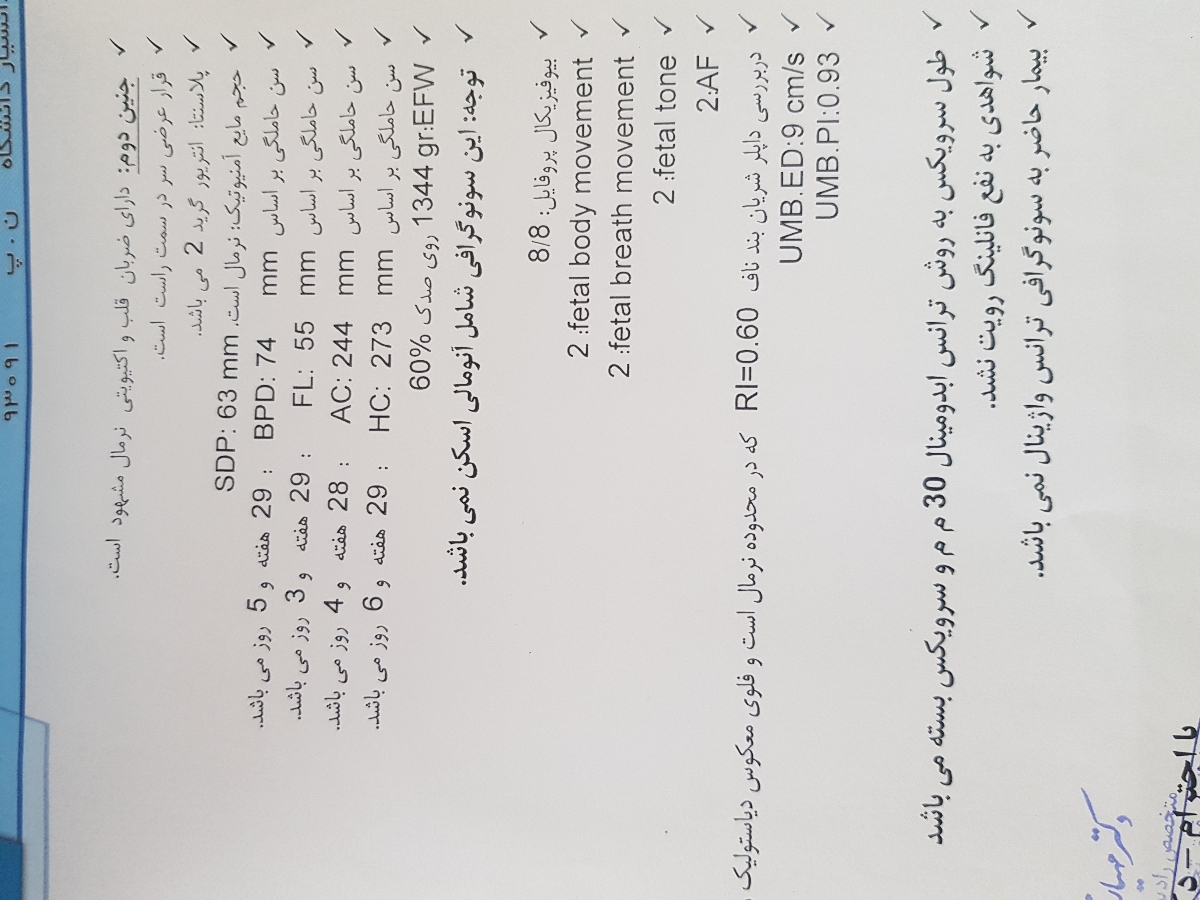 دانشگاه
ن . پ
۹۳۰۹۱
✓ جنین دوم: دارای ضربان قلب و اکتیویتی نرمال مشهود است.
✓ قرار عرضی سر در سمت راست است.
✓ پلاستا: انتریور گرید 2 می باشد.
✓ حجم مایع آمنیوتیک: نرمال است. SDP: 63 mm
✓ سن حاملگی بر اساس BPD: 74 mm : 29 هفته و 5 روز می باشد.
✓ سن حاملگی بر اساس FL: 55 mm : 29 هفته و 3 روز می باشد.
✓ سن حاملگی بر اساس AC: 244 mm : 28 هفته و 4 روز می باشد.
✓ سن حاملگی بر اساس HC: 273 mm : 29 هفته و 6 روز می باشد.
✓ 1344 gr:EFW روی صدک 60%
✓ توجه: این سونوگرافی شامل آنومالی اسکن نمی باشد.
✓ بیوفیزیکال پروفایل: 8/8
✓ 2 :fetal body movement
✓ 2 :fetal breath movement
✓ 2 :fetal tone
✓ 2:AF
✓ دربررسی داپلر شریان بند ناف RI=0.60 که در محدوده نرمال است و فلوی معکوس دیاستولیک
✓ UMB.ED:9 cm/s
✓ UMB.PI:0.93
✓ طول سرویکس به روش ترانس ابدومینال 30 م م و سرویکس بسته می باشد
✓ شواهدی به نفع فانلینگ رویت نشد.
✓ بیمار حاضر به سونوگرافی ترانس واژینال نمی باشد.
دکتر
متخصص
با احترام – د